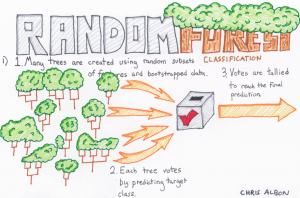 RANDOM FOREST
CLASSIFICATION
i) 1. Many trees are created using random subsets
of features and bootstrapped data.
3. Votes are tallied
to reach the final
prediction.
2. Each tree votes
by predicting target
class.
CHRIS ALBON